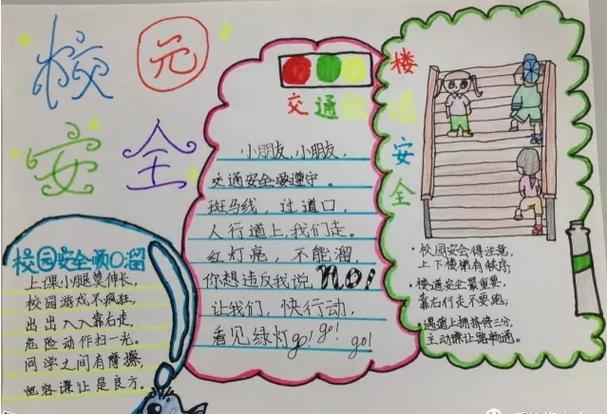 校园
安全
校园安全顺口溜
上课小腿莫伸长，
校园游戏不疯狂，
出出入入靠右走，
危险动作扫一光。
同学之间有摩擦，
包容谦让是良方。
交通
小朋友，小朋友，
交通安全要遵守。
斑马线，过道口，
人行道上，我们走。
红灯亮，不能溜，
你想违反我说NO！
让我们，快行动，
看见绿灯go！go！go！
楼道安全
·校园安会得注意，
上下楼梯有秩序；
·楼道安全最重要，
靠右行走不要跑；
·遇道上拥挤停三分，
主动谦让路畅通。